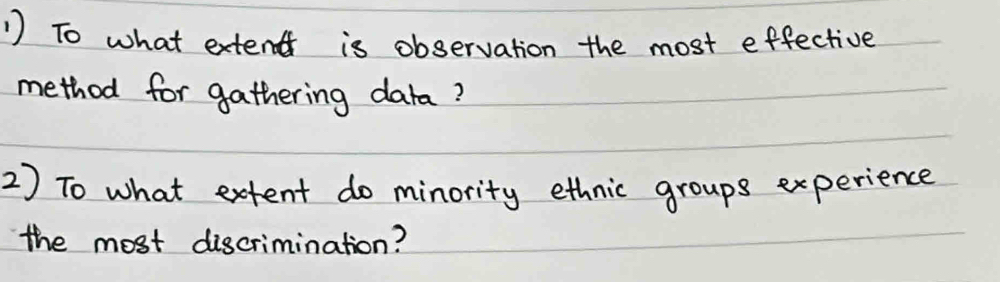 1) To what extent is observation the most effective
method for gathering data?
2) To what extent do minority ethnic groups experience
the most discrimination?